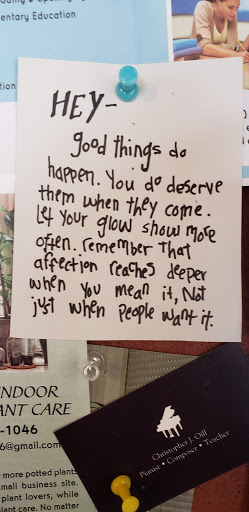 entary Education
HEY-
good things do
happen. You do deserve
them when they come.
Let your glow show more
often. remember that
affection reaches deeper
when you mean it, Not
just when people want it.
NDOOR
ANT CARE
-1046
6@gmail.com
more potted plants
small business site.
plant lovers, while
plant care. No matter
Christopher J. Oill
Pianist • Composer • Teacher